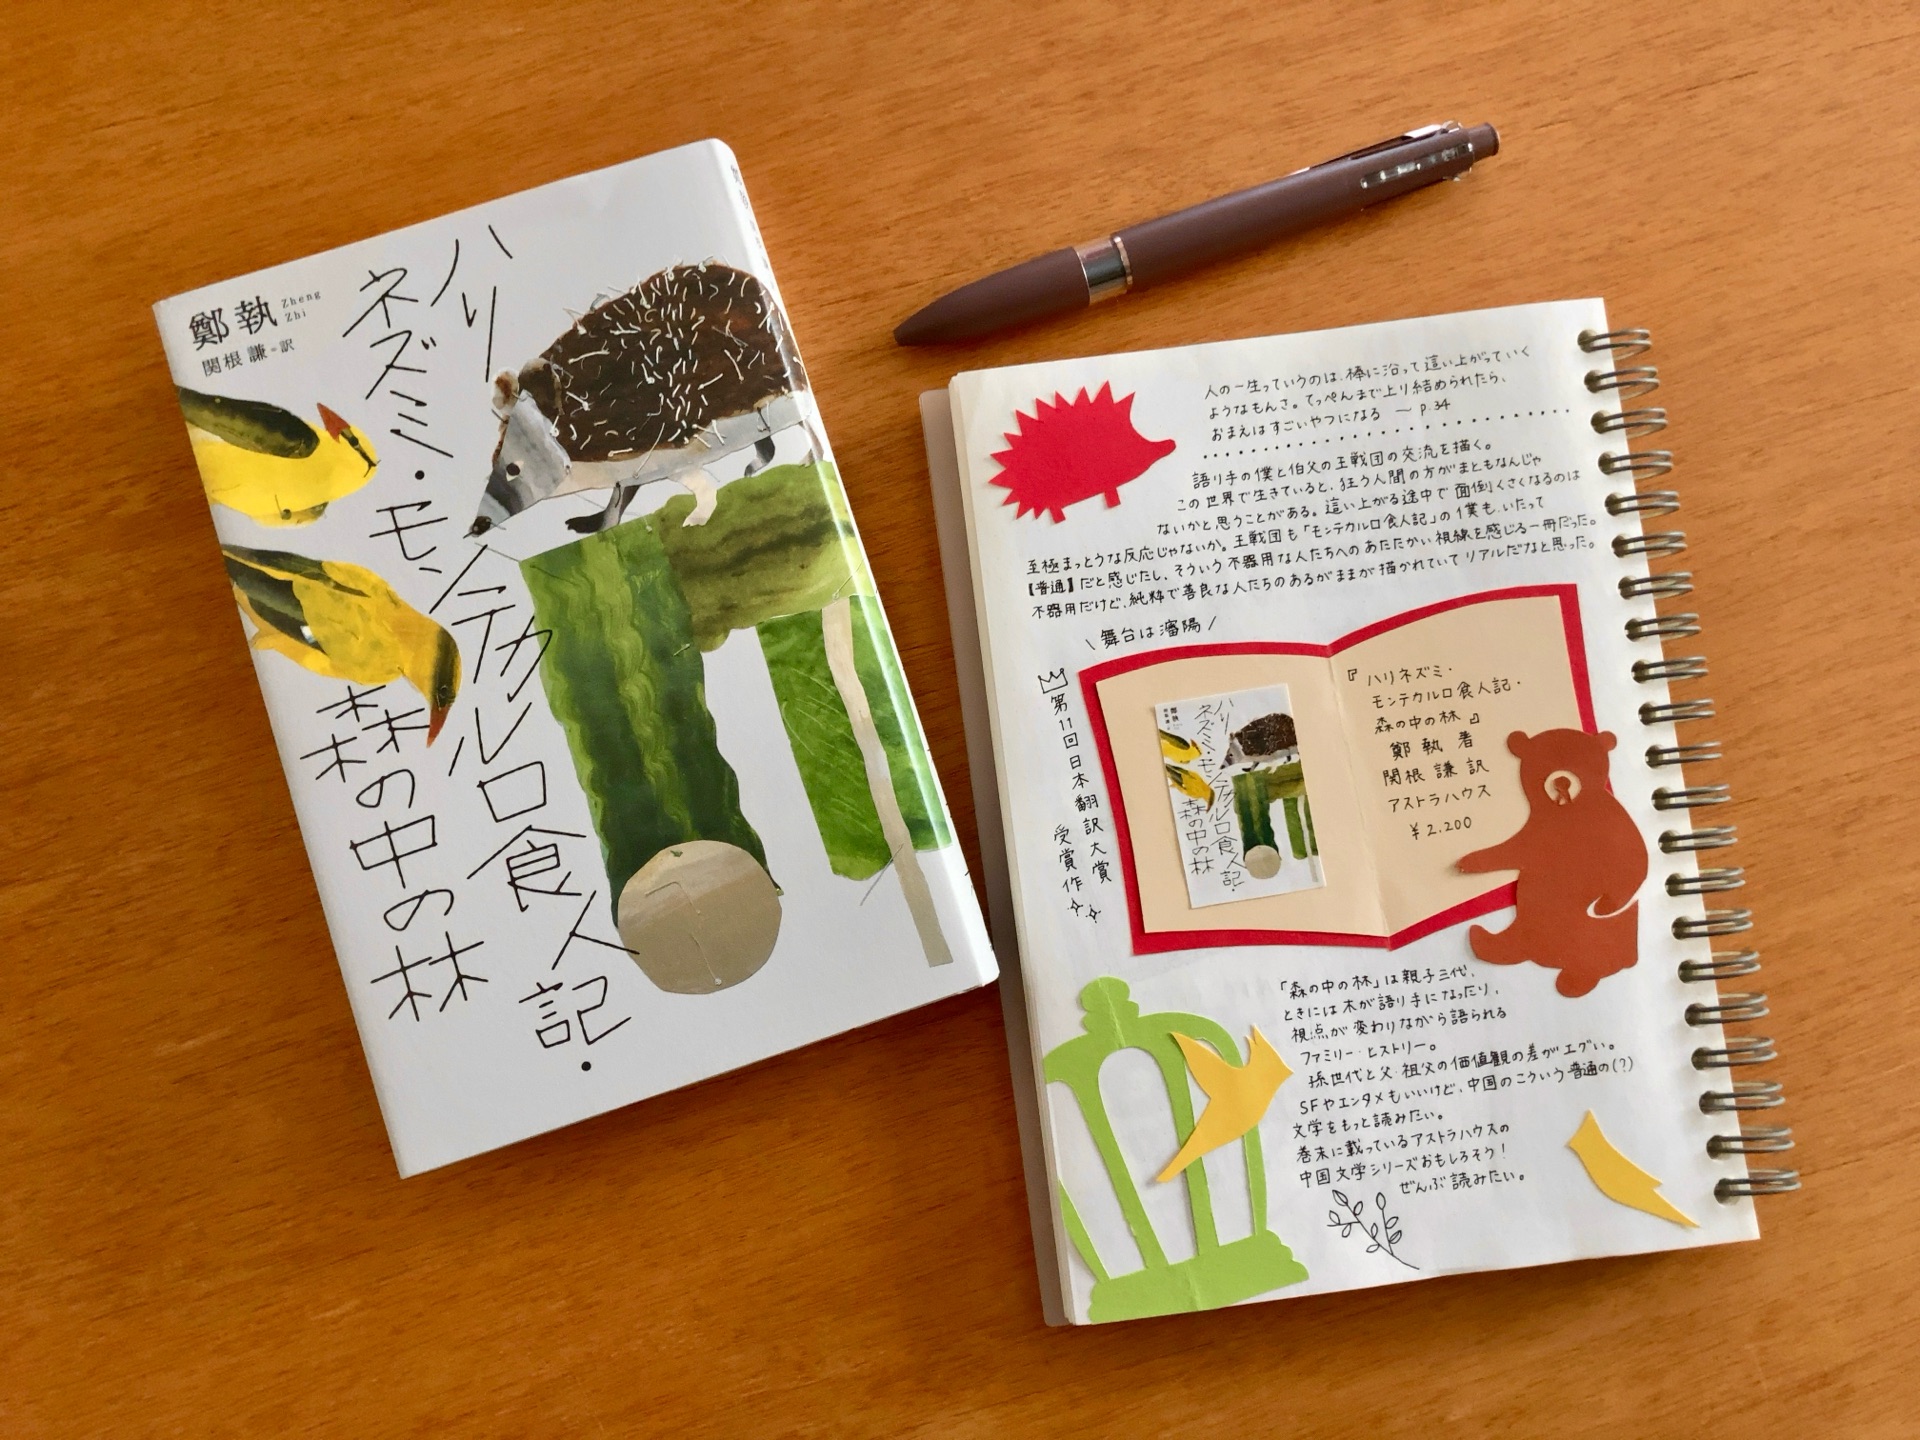 鄭執
Zheng
Zhi
関根謙=訳
ハリ
ネズミ・モンテカルロ食人記・
森の中の林
人の一生っていうのは、棒に沿って這い上がっていく
ようなもんさ。てっぺんまで上り結められたら、
おまえはすごいやつになる ～ p.34
語り手の僕と伯父の王戦団の交流を描く。
この世界で生きていると、狂う人間の方がまともなんじゃ
ないかと思うことがある。這い上がる途中で面倒くさくなるのは
至極まっとうな反応じゃないか。王戦団も「モンテカルロ食人記」の僕も、いたって
【普通】だと感じたし、そういう不器用な人たちへのあたたかい視線を感じる一冊だった。
不器用だけど、純粋で善良な人たちのあるがままが描かれていてリアルだなと思った。
\ 舞台は瀋陽 /
第11回日本翻訳大賞
受賞作
鄭執
ハリ
ネズミ・モンテカルロ食人記・
森の中の林
『ハリネズミ・
モンテカルロ食人記・
森の中の林』
鄭執 著
関根謙 訳
アストラハウス
¥2,200
「森の中の林」は親子三代、
ときには木が語り手になったり、
視点が変わりながら語られる
ファミリー・ヒストリー。
孫世代と父・祖父の価値観の差がエグい。
SFやエンタメもいいけど、中国のこういう普通の(?)
文学をもっと読みたい。
巻末に載っているアストラハウスの
中国文学シリーズおもしろそう!
ぜんぶ読みたい。